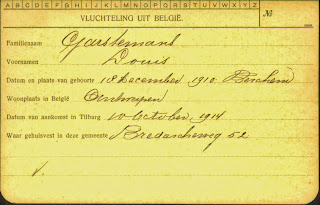 A B C D E F G H I J K L M N O P Q R S T U V W X Y Z
VLUCHTELING UIT BELGIË.
№
Familienaam Gorstemans
Voornamen Louis
Datum en plaats van geboorte 18 December 1910 Berchem
Woonplaats in België Antwerpen
Datum van aankomst in Tilburg 10 October 1914
Waar gehuisvest in deze gemeente Bredascheweg 52